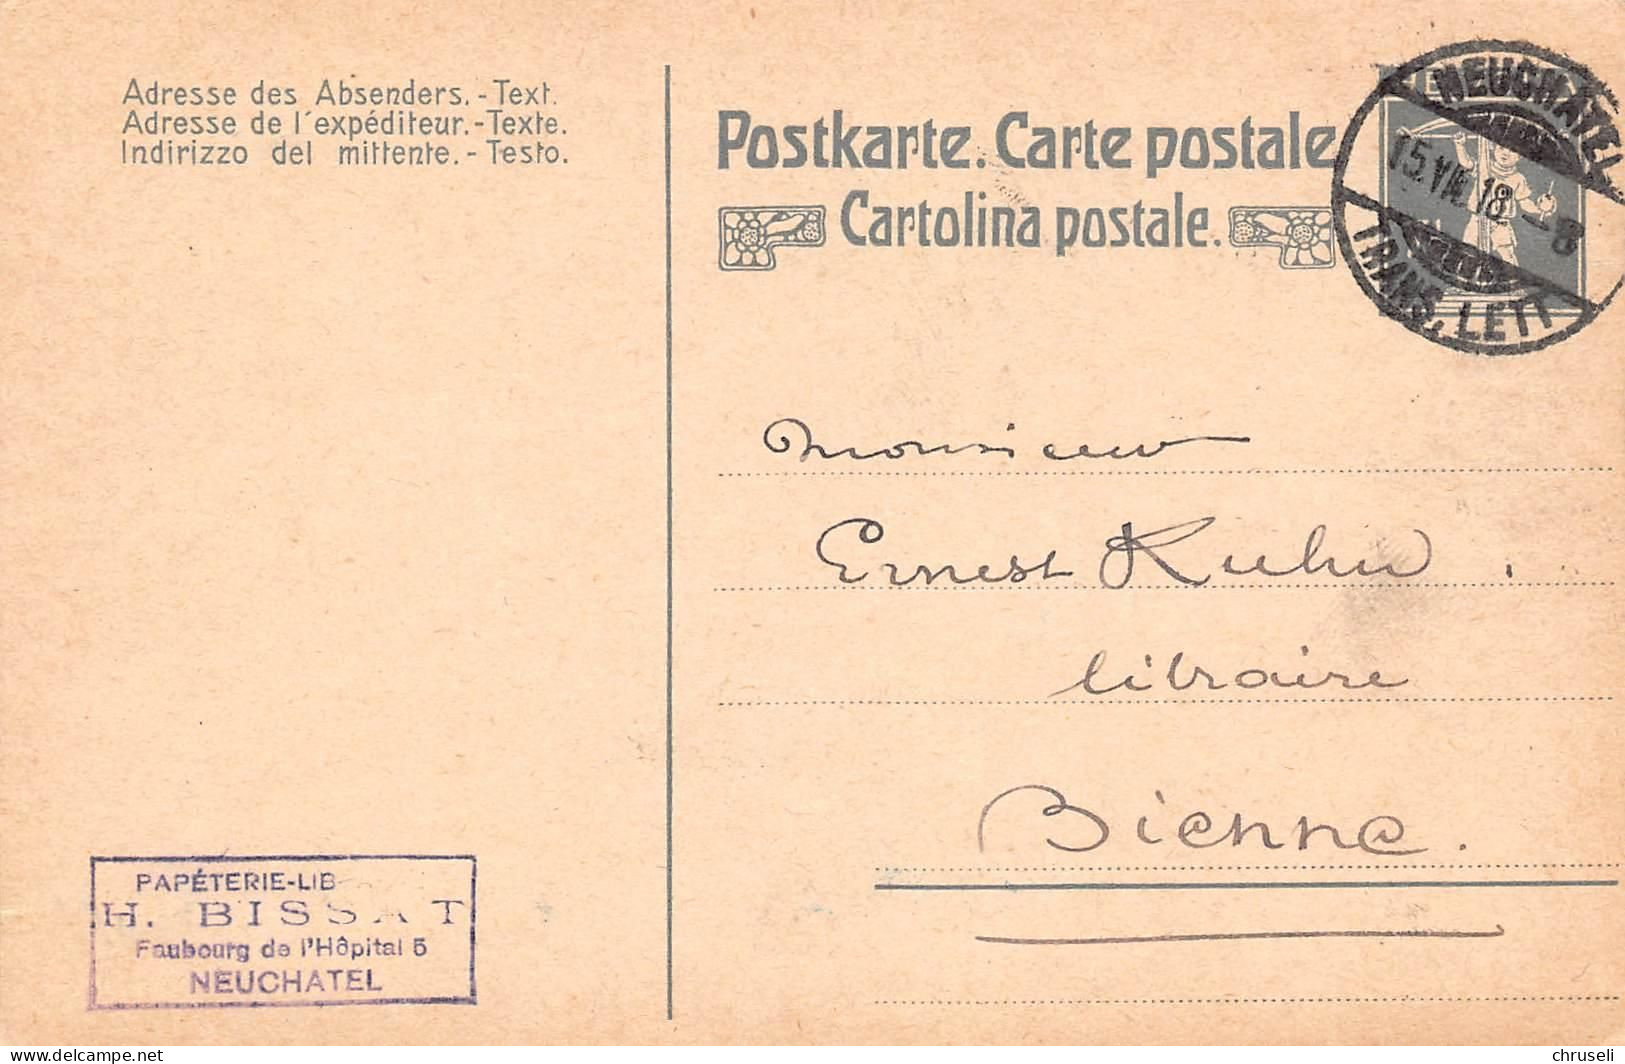 Adresse des Absenders.-Text.
Adresse de l'expéditeur.-Texte.
Indirizzo del mittente.-Testo.
Postkarte. Carte postale
Cartolina postale.
NEUCHATEL
15.VII.18 -8
TRANS. LETT
Monsieur
Ernest Kuhn.
libraire
Bienne.
PAPÉTERIE-LIB
H. BISSAT
Faubourg de l'Hôpital 5
NEUCHATEL
delcampe.net
chruseli